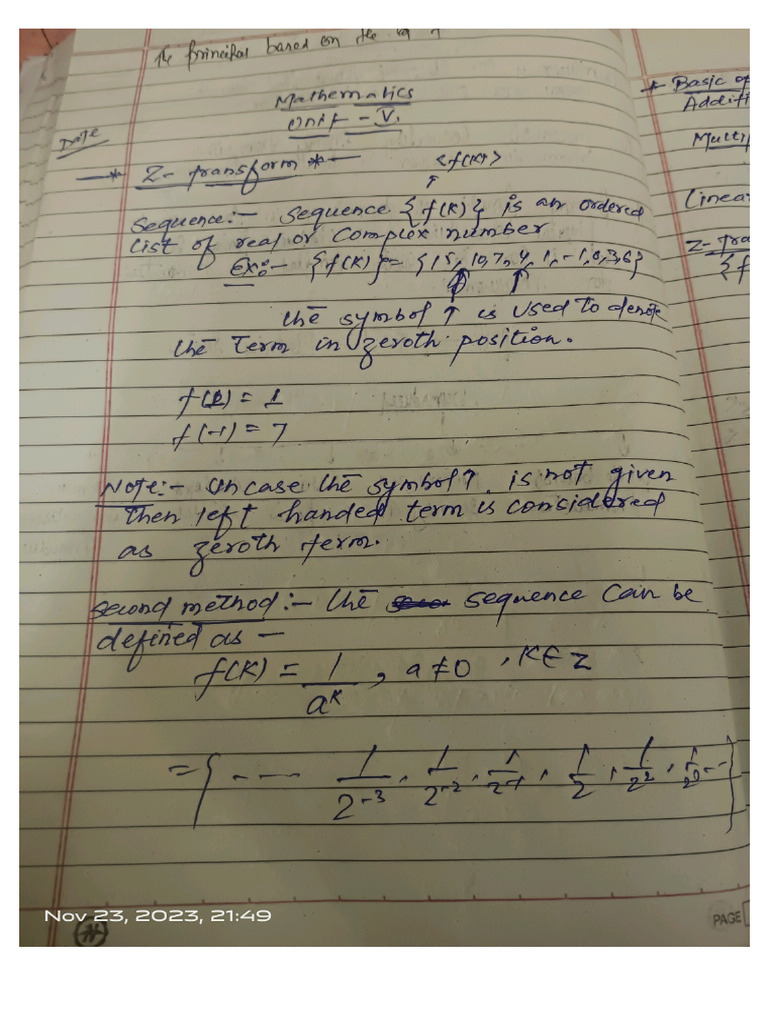 the Principal based on the
Mathematics
Unit - V.
Date
* Z- transform * -
<f(K)>
↑
Sequence:- Sequence {f(K)} is an ordered
list of real or complex number.
Ex:- {f(K)} = {15, 10, 7, 4, 1, -1, 0, 3, 6}
↑
the symbol ↑ is used to denote
the Term in zeroth position.
f(1) = 1
f(-1) = 7
Note:- In case the symbol ↑ is not given
then left handed term is considered
as zeroth term.
second method:- the sequence can be
defined as -
f(K) = 1/a^K , a≠0 , K∈Z
= { ---- 1/2^-3 , 1/2^-2 , 1/2^-1 , 1/2 , 1/2^2 , -- }
* Basic of
Additi
Multip
Linea
Z-Tra
{f
Nov 23, 2023, 21:49
PAGE